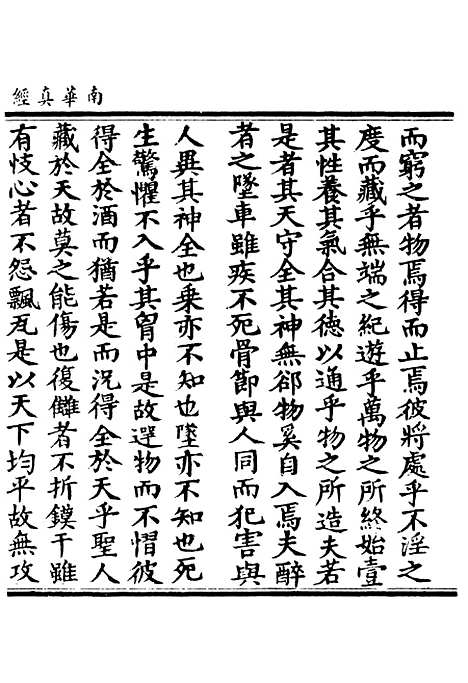 南華真經
而窮之者物焉得而止焉彼將處乎不淫之
度而藏乎無端之紀遊乎萬物之所終始壹
其性養其氣合其德以通乎物之所造夫若
是者其天守全其神無郤物奚自入焉夫醉
者之墜車雖疾不死骨節與人同而犯害與
人異其神全也乗亦不知也墜亦不知也死
生驚懼不入乎其胷中是故遻物而不慴彼
得全於酒而猶若是而況得全於天乎聖人
藏於天故莫之能傷也復讎者不折鏌干雖
有忮心者不怨飄瓦是以天下均平故無攻